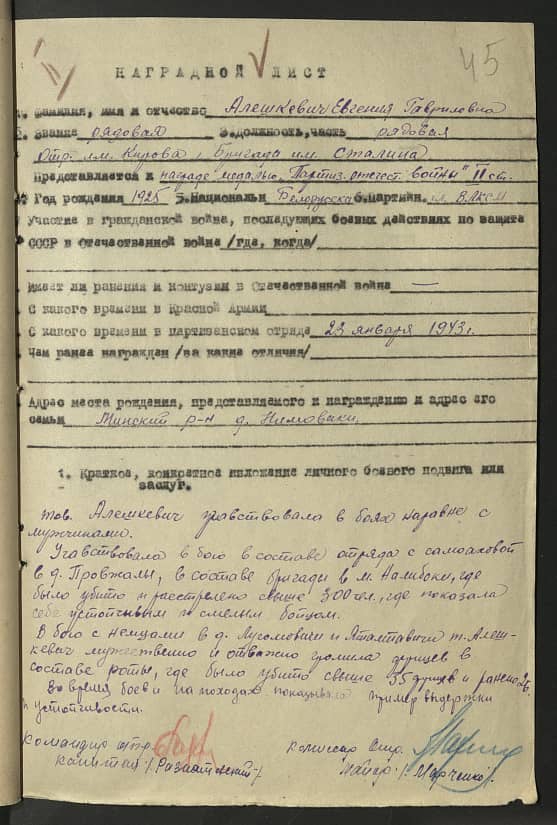 45
НАГРАДНОЙ ЛИСТ
1. Фамилия, имя и отчество Алешкевич Евгения Гавриловна
2. Звание рядовая 3. должность, часть рядовая
Отр. им. Кирова, Бригада им. Сталина
Представляется к награде медалью "Партиз. отечест. войны" II ст.
4. Год рождения 1925 5. Национальн Белорусска 6. Партийн. чл. ВЛКСМ
Участие в гражданской война, последующих боевых действиях по защите
СССР в Отечественной война /где, когда/
Имеет ли ранения и контузии в Отечественной война —
С какого времени в Красной Армии
С какого времени в партизанском отряде 23 января 1943г.
Чем ранее награжден /за какие отличия/
Адрес места рождения, представляемого к награждению и адрес его
семьи Минский р-н д.
1. Краткое, конкретное изложение личного боевого подвига или
заслуг.
тов. Алешкевич участвовала в боях наравне с
мужчинами.
Участвовала в бою в составе отряда с самоаховой
в д. Провжалы, в составе бригады в м. Налибоки, где
было убито и расстрелено свыше 300 чел., где показала
себя устойчивым и смелым бойцом.
В бою с немцами в д. и т. Алеш-
кевич мужественно и отважно громила фрицев в
составе роты, где было убито свыше 35 фрицев и ранено 26.
Во время боев и на походах показывала пример выдержки
и устойчивости.
Командир отр.
капитан /
Комиссар Отр.
Майор /Марченко/